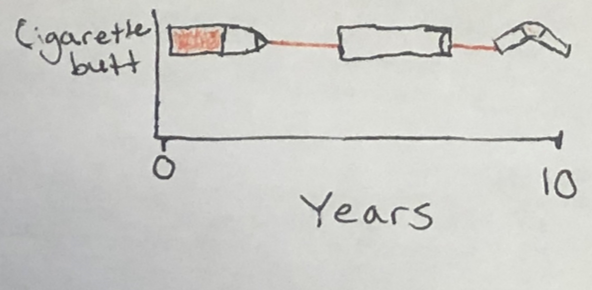 Cigarette
butt
0
10
Years